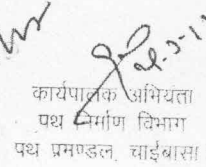 कार्यपालक अभियंता
पथ निर्माण विभाग
पथ प्रमण्डल, चाईबासा